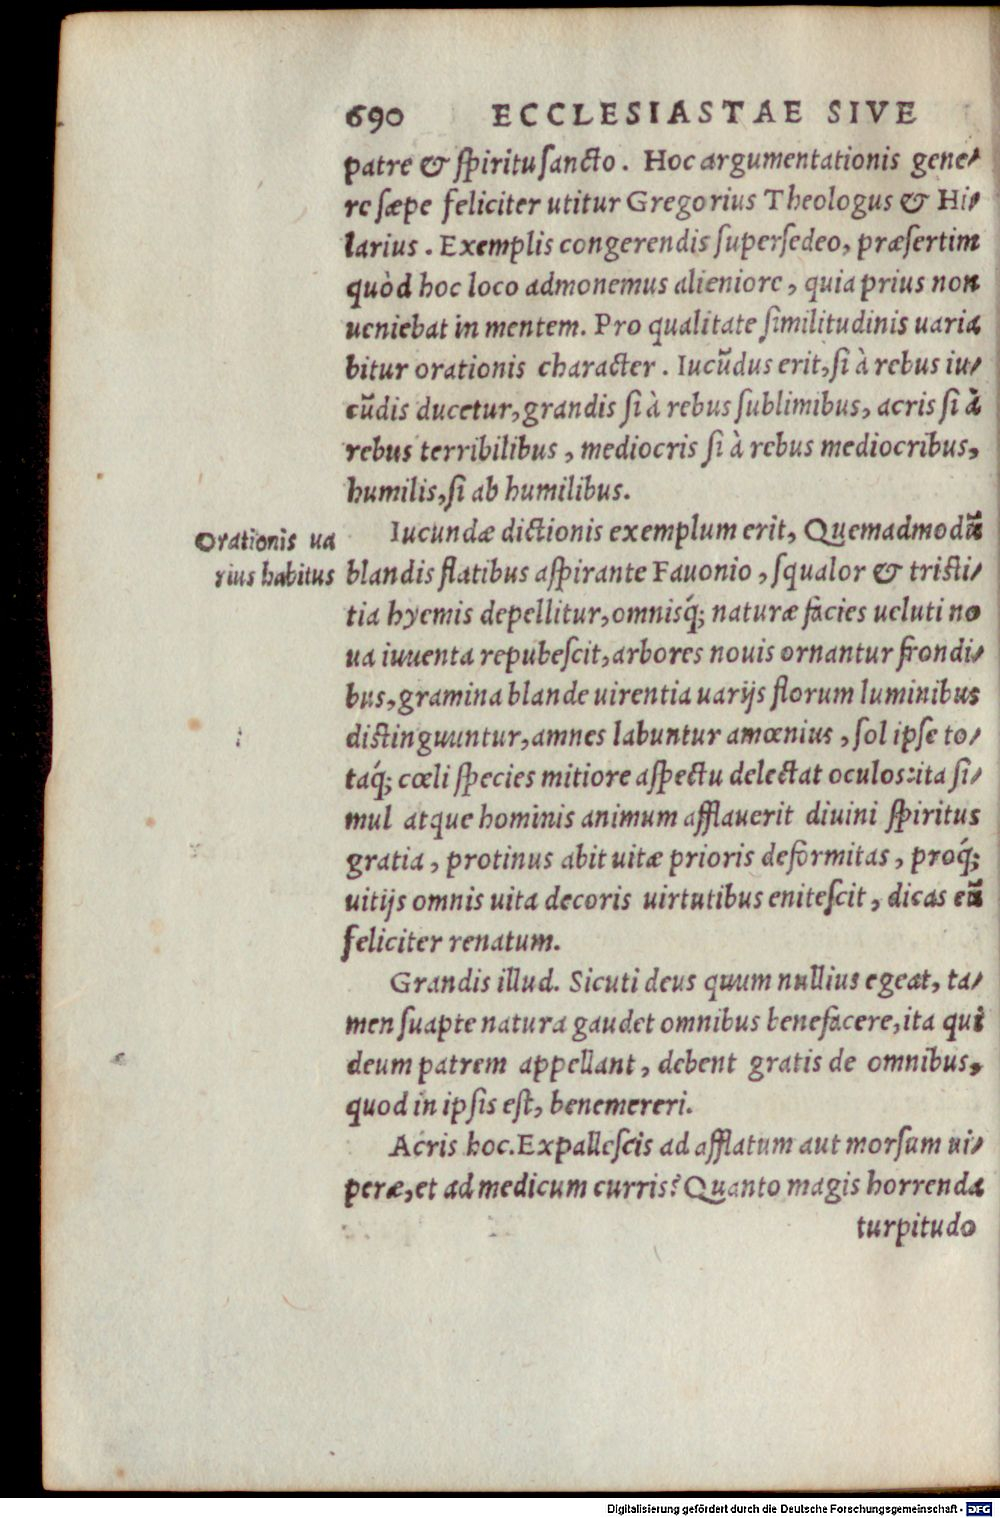 690 ECCLESIASTAE SIVE
patre & ſpiritu ſancto. Hoc argumentationis gene-
re ſæpe feliciter utitur Gregorius Theologus & Hi-
larius. Exemplis congerendis ſuperſedeo, præſertim
quòd hoc loco admonemus alieniore, quia prius non
ueniebat in mentem. Pro qualitate ſimilitudinis uaria
bitur orationis character. Iucũdus erit, ſi à rebus iu-
cũdis ducetur, grandis ſi à rebus ſublimibus, acris ſi à
rebus terribilibus, mediocris ſi à rebus mediocribus,
humilis, ſi ab humilibus.
Orationis ua
rius habitus
Iucundæ dictionis exemplum erit, Quemadmodũ
blandis flatibus aſpirante Fauonio, ſqualor & triſti-
tia hyemis depellitur, omnisq́; naturæ facies ueluti no
ua iuuenta repubeſcit, arbores nouis ornantur frondi-
bus, gramina blande uirentia uarijs florum luminibus
diſtinguuntur, amnes labuntur amœnius, ſol ipſe to-
taq́; cœli ſpecies mitiore aſpectu delectat oculos: ita ſi-
mul atque hominis animum afflauerit diuini ſpiritus
gratia, protinus abit uitæ prioris deformitas, proq́;
uitijs omnis uita decoris uirtutibus eniteſcit, dicas eũ
feliciter renatum.
Grandis illud. Sicuti deus quum nullius egeat, ta-
men ſuapte natura gaudet omnibus benefacere, ita qui
deum patrem appellant, debent gratis de omnibus,
quod in ipſis eſt, benemereri.
Acris hoc. Expalleſcis ad afflatum aut morſum ui-
peræ, et ad medicum curris? Quanto magis horrenda
turpitudo
Digitalisierung gefördert durch die Deutsche Forschungsgemeinschaft - DFG